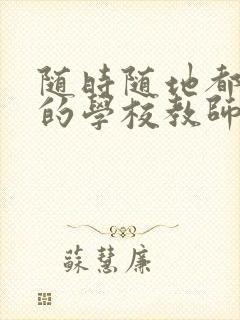 随時随地都
的學校教師
蘇慧廉